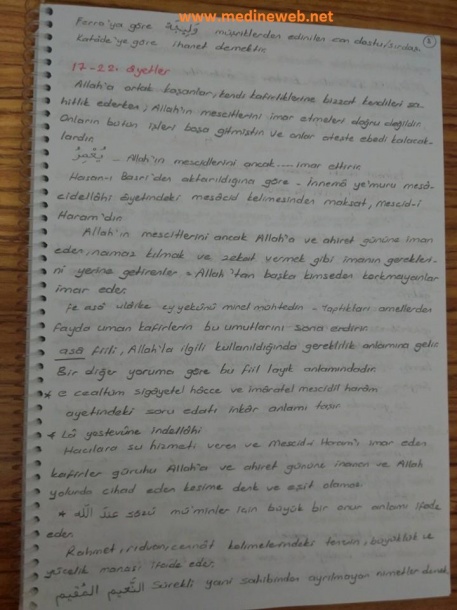 www.medineweb.net
3
Ferra'ya göre وَلِيجَةً müşriklerden edinilen can dostu/sırdaş
Katâde'ye göre ihanet demektir.
17-22. âyetler
Allah'a ortak koşanlar, kendi kafirliklerine bizzat kendileri şa-
hitlik ederken, Allah'ın mescitlerini imar etmeleri doğru değildir.
Onların bütün işleri boşa gitmiştir ve onlar ateşte ebedi kalacak-
lardır.
يَعْمُرُ — Allah'ın mescidlerini ancak ---- imar ettirir.
Hasan-ı Basri'den aktarıldığına göre - İnnemâ ye'muru mesâ-
cidellâhi âyetindeki mesâcid kelimesinden maksat, Mescid-i
Haram'dır.
Allah'ın mescitlerini ancak Allah'a ve ahiret gününe iman
eden, namaz kılmak ve zekat vermek gibi imanın gerekleri-
ni yerine getirenler = Allah'tan başka kimseden korkmayanlar
imar eder.
fe asâ ulâike ey yekûnû minel mühtedin - Yaptıkları amellerden
fayda uman kafirlerin bu umutlarını sona erdirir.
asâ fiili, Allah'la ilgili kullanıldığında gereklilik anlamına gelir.
Bir diğer yoruma göre bu fiil layık anlamındadır.
* e cealtüm sigâyetel hâcce ve imâratel mescidil harâm
ayetindeki soru edatı inkâr anlamı taşır.
* Lâ yestevûne indellâhi
Hacılara su hizmeti veren ve Mescid-i Haram'ı imar eden
kafirler güruhu Allah'a ve ahiret gününe inanan ve Allah
yolunda cihad eden kesime denk ve eşit olamaz.
* عِنْدَ اللّٰه sözü mü'minler için büyük bir onur anlamı ifade
eder.
Rahmet, rıdvan, cennât kelimelerindeki tenvin, büyüklük ve
yücelik manası ifade eder.
النَّعِيم المُقِيم Sürekli yani sahibinden ayrılmayan nimetler demek